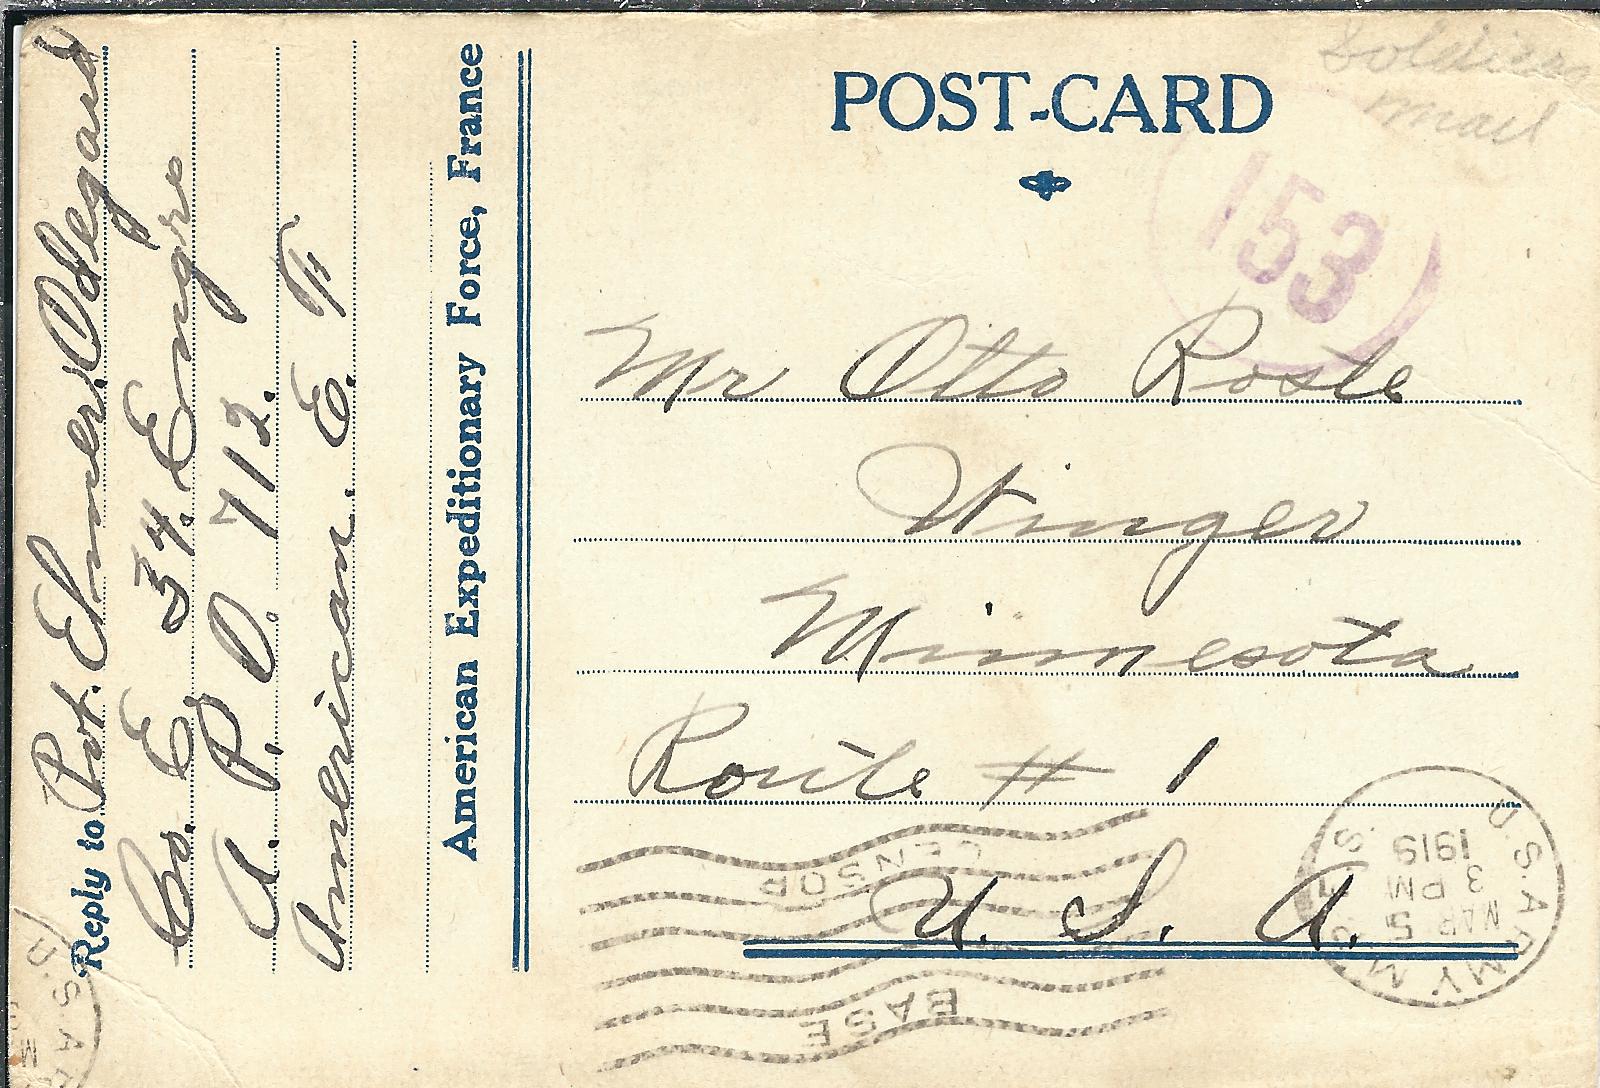 POST-CARD
Soldiers
mail
153
Reply to Pvt. Elmer Odegard
Co. E 34. Engrs
A. P. O. 712.
American. E. F
American Expeditionary Force, France
Mr Otto Roste
Winger
Minnesota
Route # 1
U. S. A.
BASE
CENSOR
U.S. ARMY M.P.S.
MAR 5
3 PM
1919
U.S.A
M